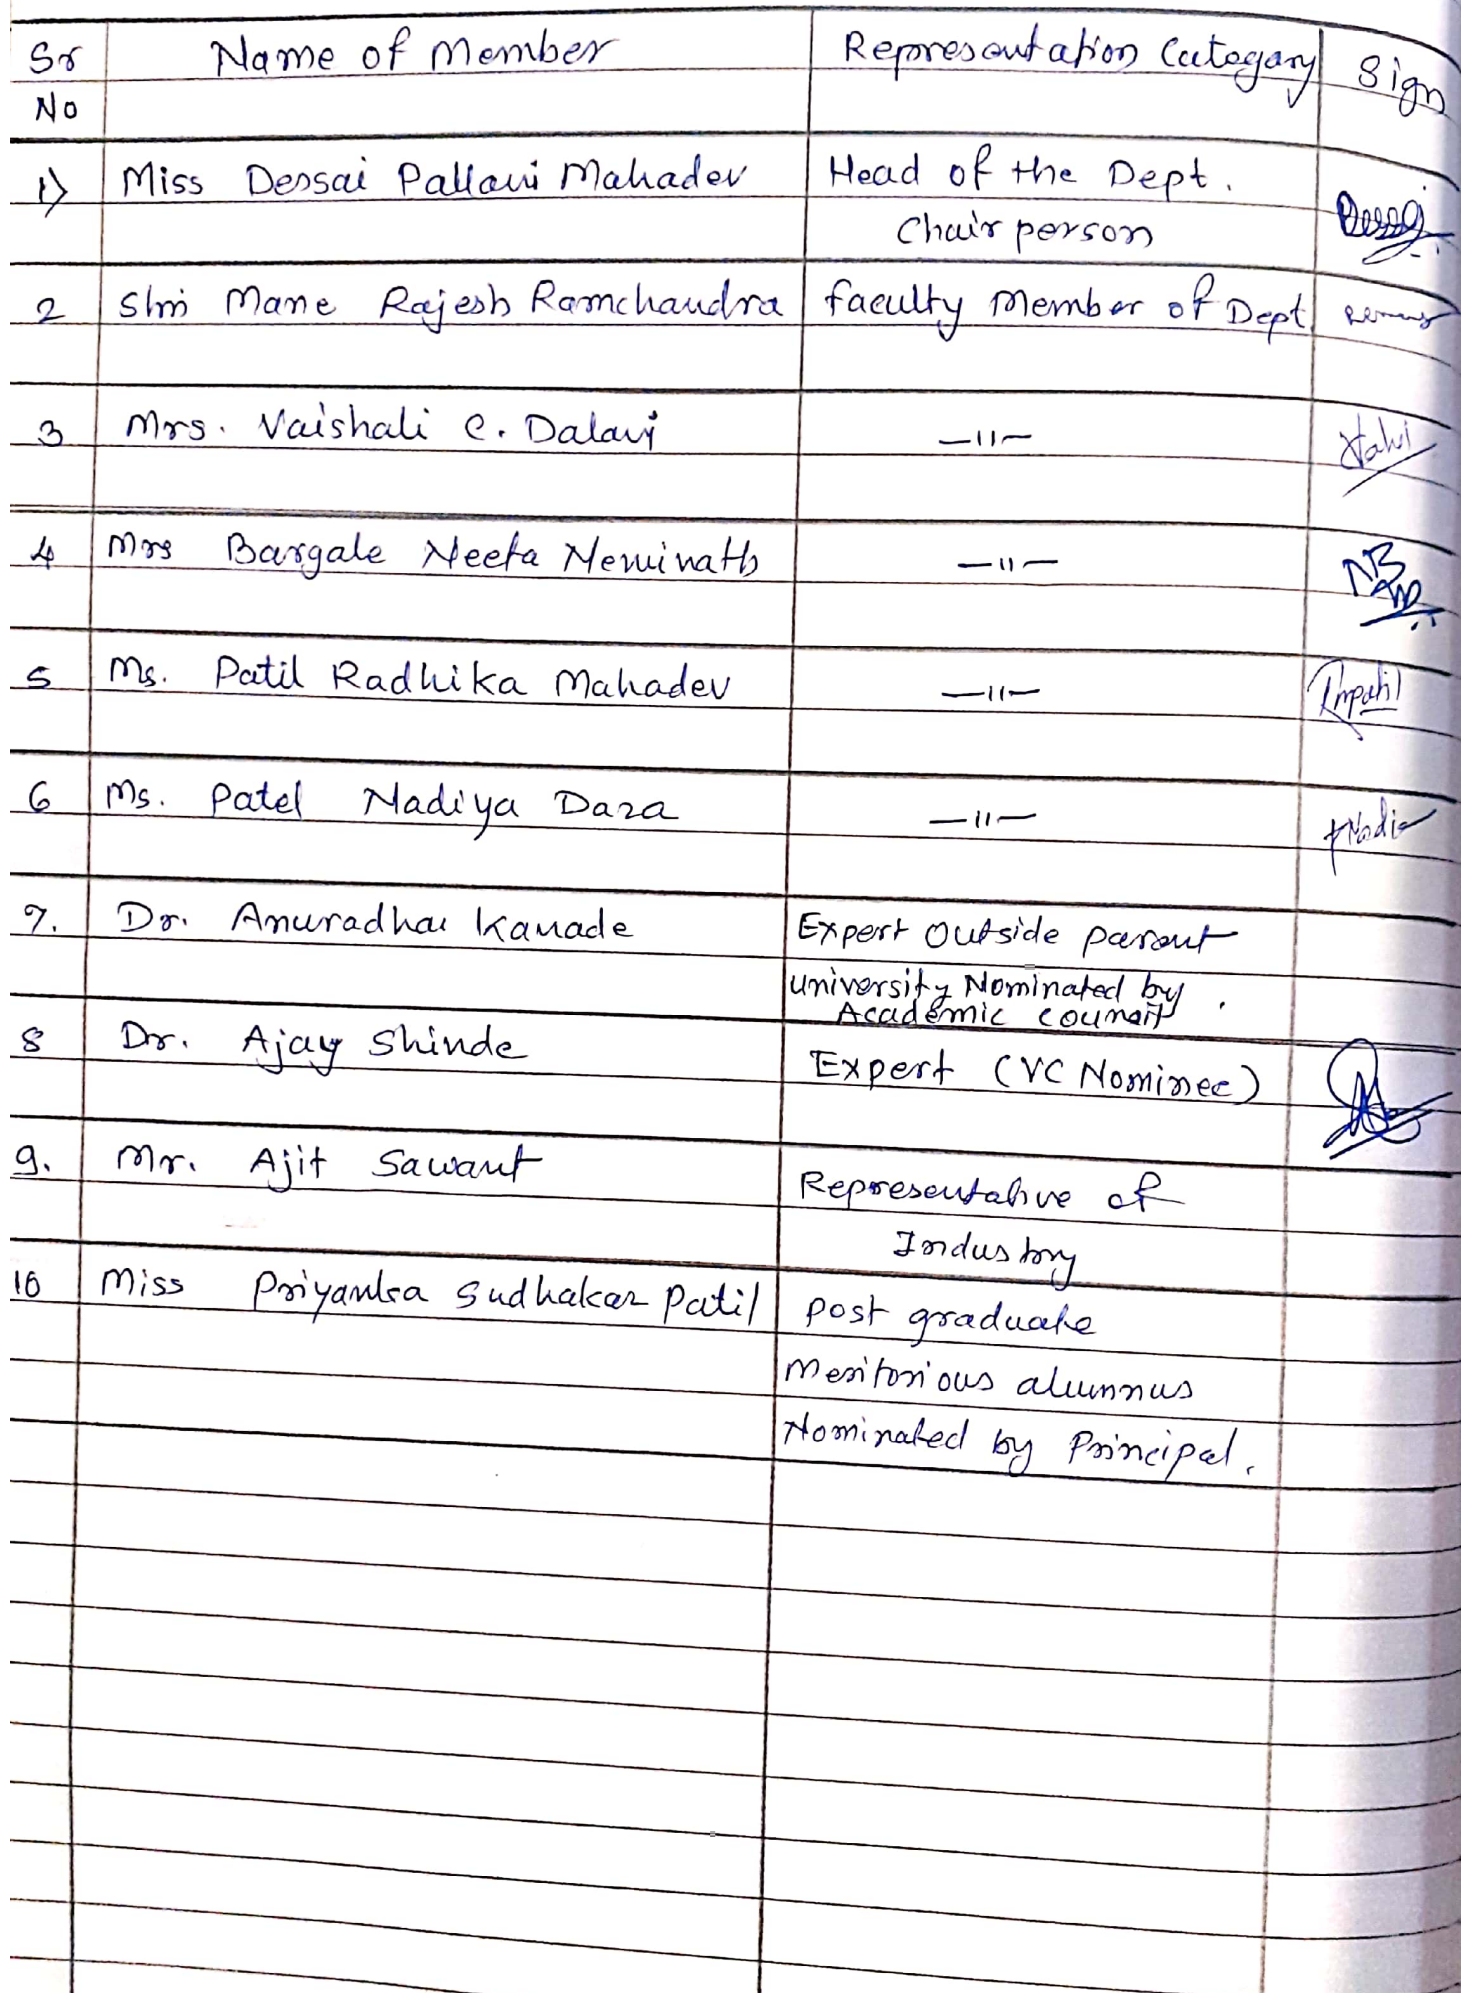 Sr Name of Member Representation Category Sign
No
1) Miss Dessai Pallavi Mahadev Head of the Dept.
Chair person
2 Shri Mane Rajesh Ramchandra faculty Member of Dept
3 Mrs. Vaishali C. Dalavi —11—
4 Mrs Bargale Neeta Neminath —11—
5 Ms. Patil Radhika Mahadev —11— Rmpatil
6 Ms. Patel Nadiya Daza —11—
7. Dr. Anuradha Kanade Expert Outside parent
university Nominated by
Academic council
8 Dr. Ajay Shinde Expert (VC Nominee)
9. Mr. Ajit Sawant Representative of
Industry
10 Miss Priyanka Sudhakar Patil post graduate
Meritorious alumnus
Nominated by Principal.